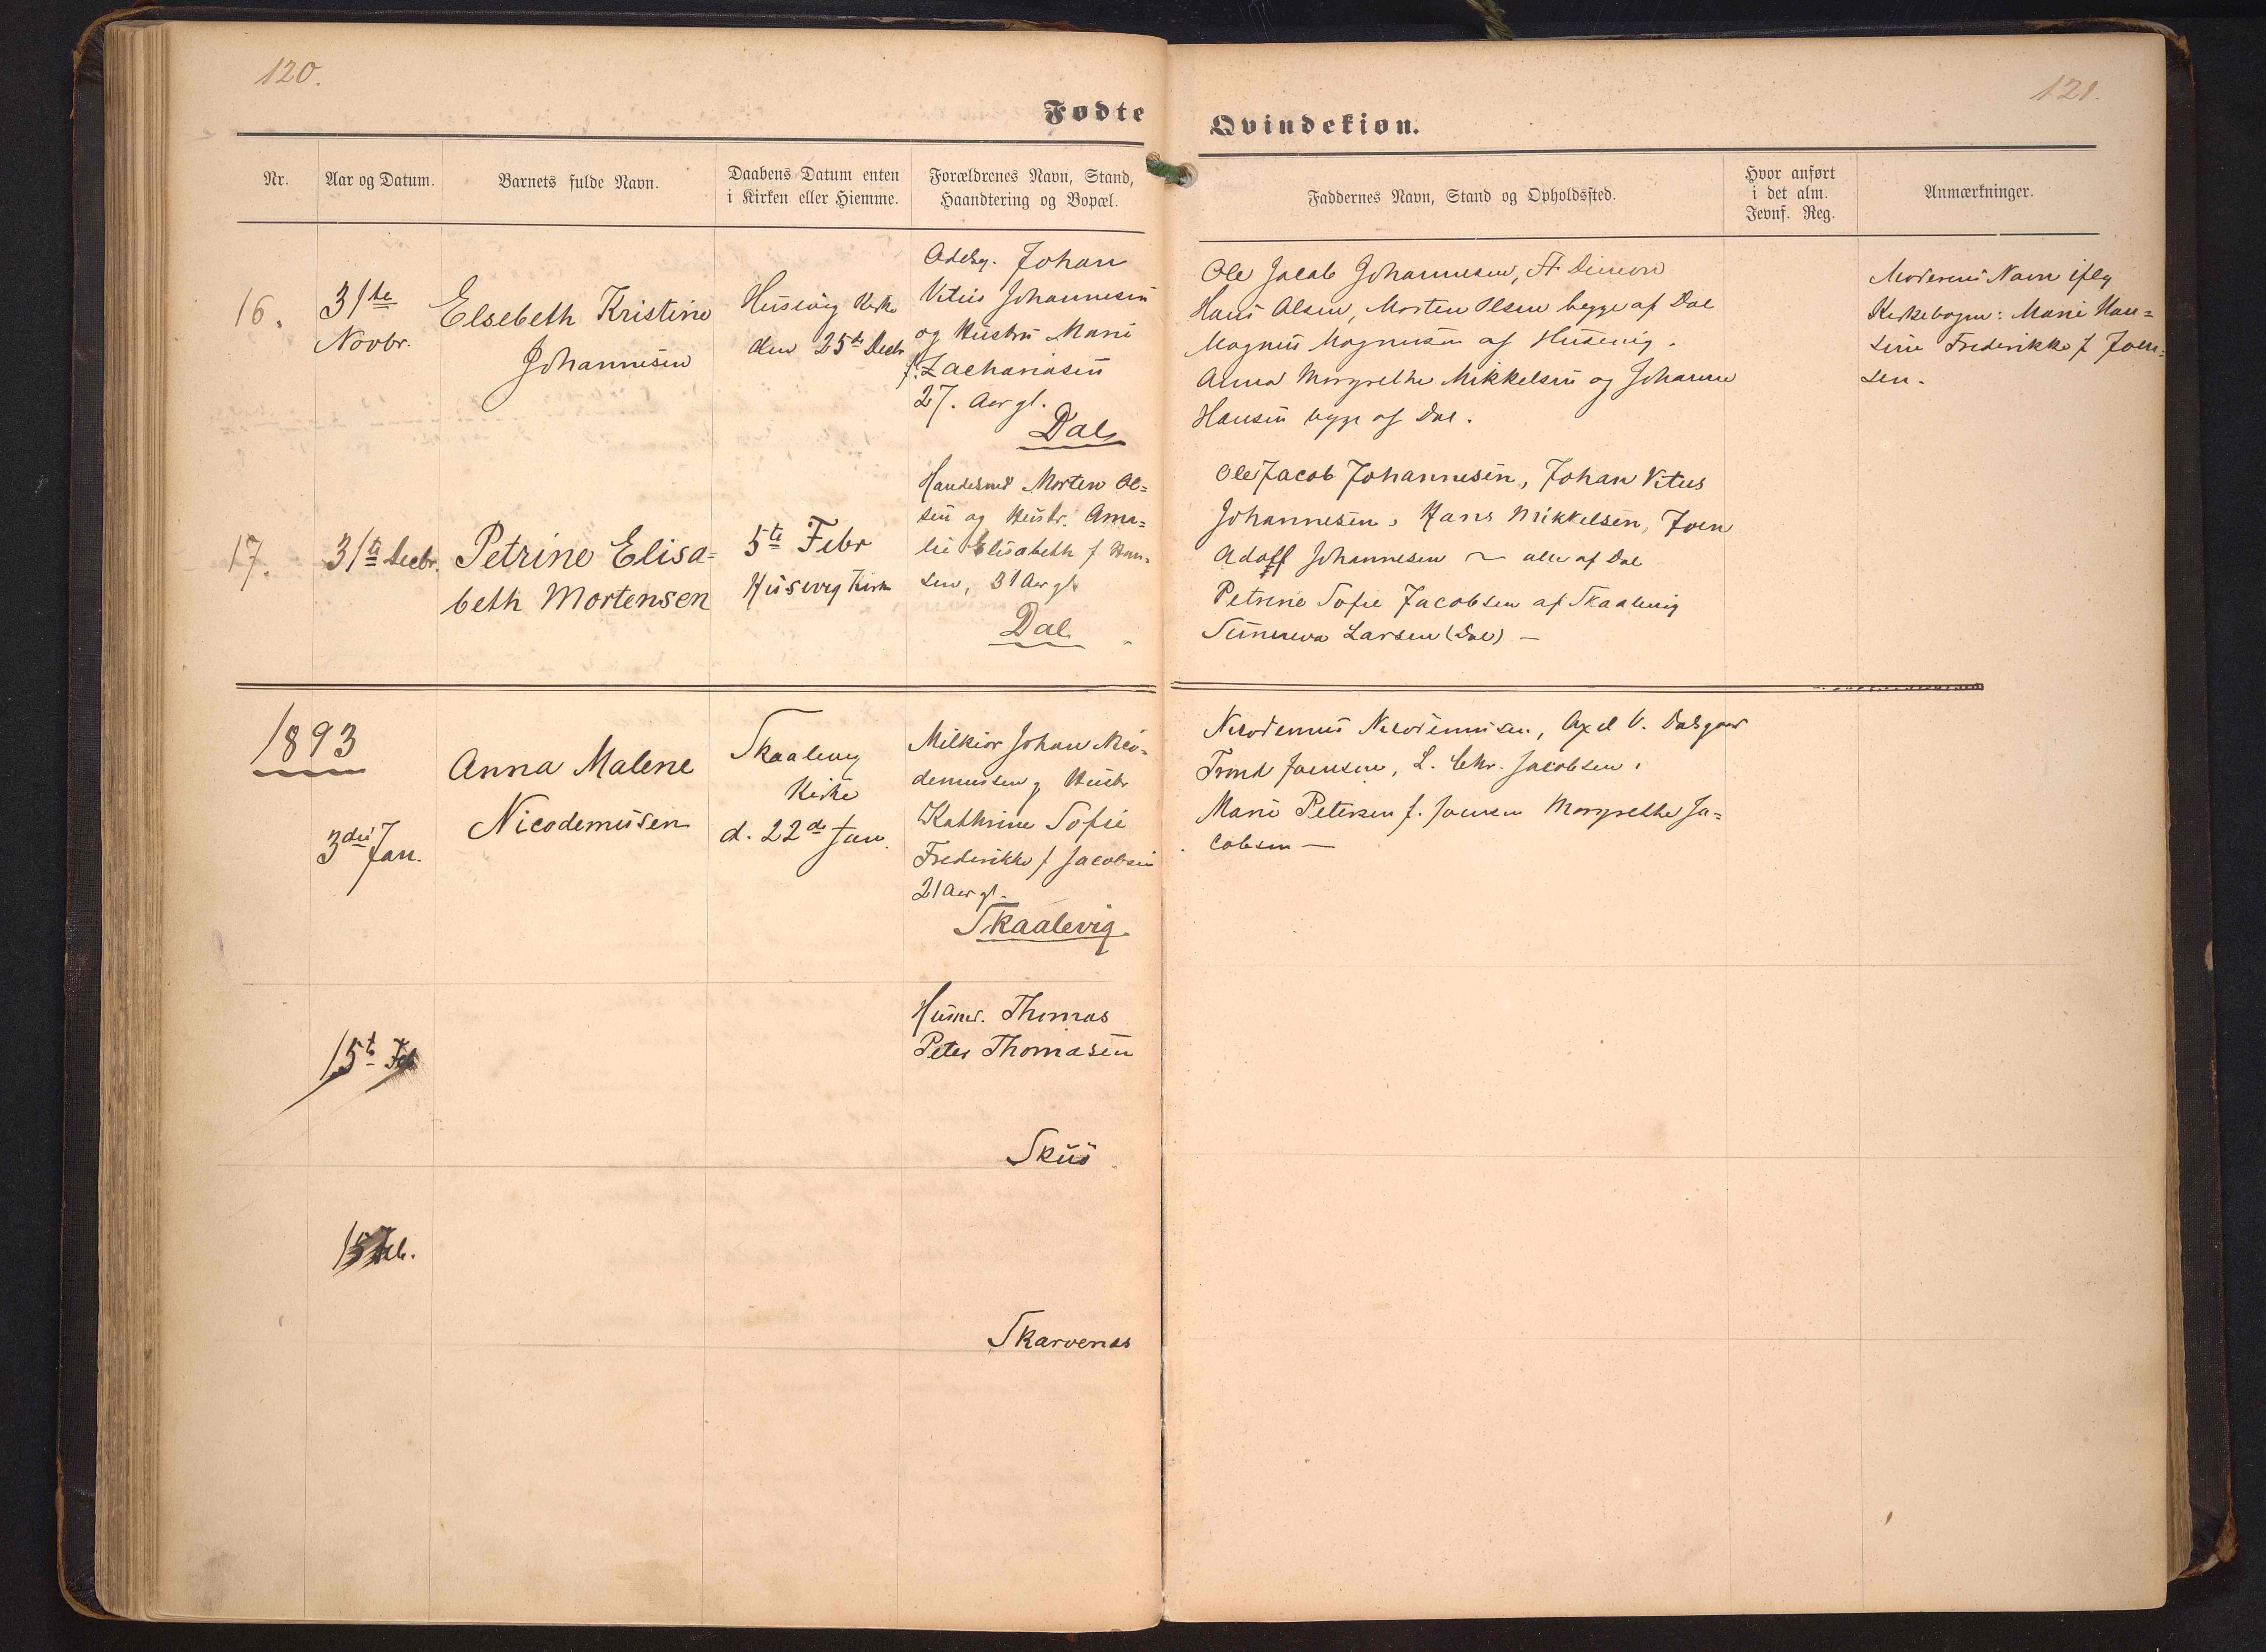 120.
121.
Fødte
Qvindekiøn.
Nr.
Aar og Datum.
Barnets fulde Navn.
Daabens Datum enten
i Kirken eller Hiemme.
Forældrenes Navn, Stand,
Haandtering og Bopæl.
Faddernes Navn, Stand og Opholdssted.
Hvor anført
i det alm.
Jevnf. Reg.
Anmærkninger.
16.
31te
Novbr.
Elsebeth Kristine
Johannesen
Husevig Kirke
den 25de Decbr
Johan
Vitus Johannesen
og Hustru Marie
f. Zachariasen
27. Aar gl.
Dal
Ole Jacob Johannesen, St. Dimon
Hans Olsen, Morten Olsen begge af Dal
Magnus Magnusen af Husevig.
Anna Margrethe Mikkelsen og Johanne
Hansen begge af Dal.
Moderens Navn iflg
Kirkebogen: Marie Han=
sine Frederikke f Joen=
sen.
17.
31te Decbr.
Petrine Elisa=
beth Mortensen
5te Febr
Husevig Kirke
Morten Ol=
sen og Hustr. Ama=
lie Elisabeth f Han=
sen, 31 Aar gl
Dal
Ole Jacob Johannesen, Johan Vitus
Johannesen, Hans Mikkelsen, Joen
Adolf Johannesen ~ alle af Dal
Petrine Sofie Jacobsen af Skaalevig
Sunneva Larsen (Dal) —
1893
3die Jan.
Anna Malene
Nicodemusen
Skaalevig
Kirke
d. 22de Jan.
Melkior Johan Nico=
demussen og Hustr
Kathrine Sofie
Frederikke f Jacobsen
21 Aar gl.
Skaalevig
Nicodemus Nicodemusen, Axel V. Dalsgaard
Trond Joensen, L. Chr. Jacobsen,
Marie Petersen f. Joensen Margrethe Ja=
cobsen —
15te Feb
Husmd. Thomas
Peter Thomasen
Skuø
15 Feb.
Skarvenes